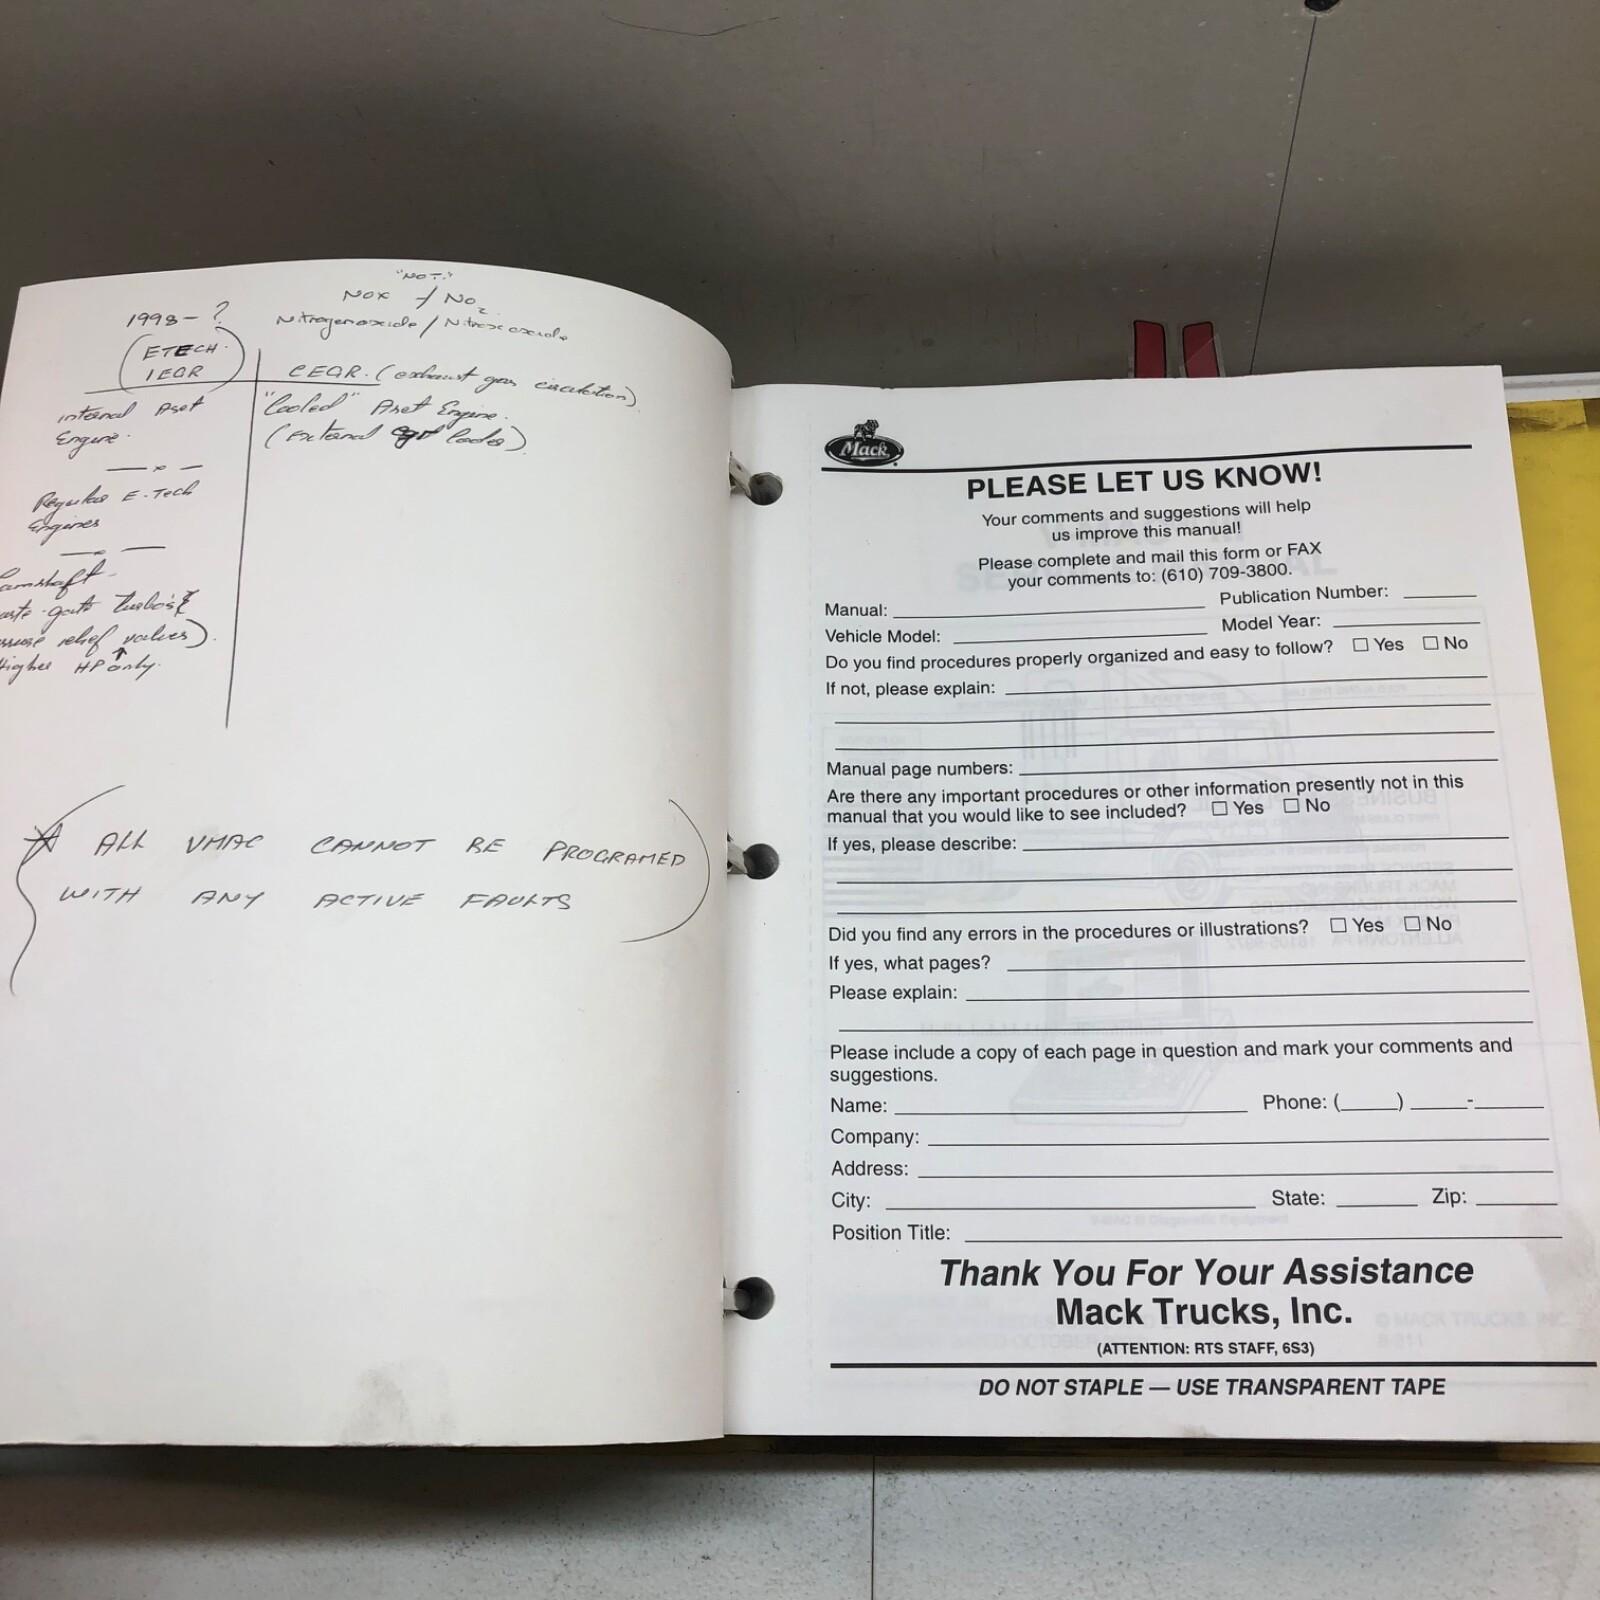 "NOT."
NOX / NO2
1998 - ? Nitrogenoxide /
ETECH.
IEGR
CEGR. (exhaust gas circulation)
internal Aset
Engine.
"Cooled" Aset Engine.
(External egr
Regular E-Tech
Engines
amshaft -
aste-gate Turbo's &
relief valves).
Higher HP only.
ALL VMAC CANNOT BE PROGRAMED
WITH ANY ACTIVE FAULTS
Mack
PLEASE LET US KNOW!
Your comments and suggestions will help
us improve this manual!
Please complete and mail this form or FAX
your comments to: (610) 709-3800.
Manual: Publication Number:
Vehicle Model: Model Year:
Do you find procedures properly organized and easy to follow? ☐ Yes ☐ No
If not, please explain:
Manual page numbers:
Are there any important procedures or other information presently not in this
manual that you would like to see included? ☐ Yes ☐ No
If yes, please describe:
Did you find any errors in the procedures or illustrations? ☐ Yes ☐ No
If yes, what pages?
Please explain:
Please include a copy of each page in question and mark your comments and
suggestions.
Name: Phone: (_____) _____-______
Company:
Address:
City: State: Zip:
Position Title:
Thank You For Your Assistance
Mack Trucks, Inc.
(ATTENTION: RTS STAFF, 6S3)
DO NOT STAPLE — USE TRANSPARENT TAPE